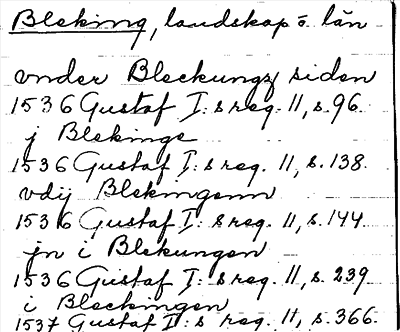 Bleking, landskap o. län
vnder Bleckungz siden
1536 Gustaf I:s reg. 11, s. 96.
j Blekinge
1536 Gustaf I:s reg. 11, s. 138.
vdij Blekingenn
1536 Gustaf I:s reg. 11, s. 144
jn i Blekungen
1536 Gustaf I:s reg. 11, s. 239
i Bleckingen
1537 Gustaf I:s reg. 11, s. 366.